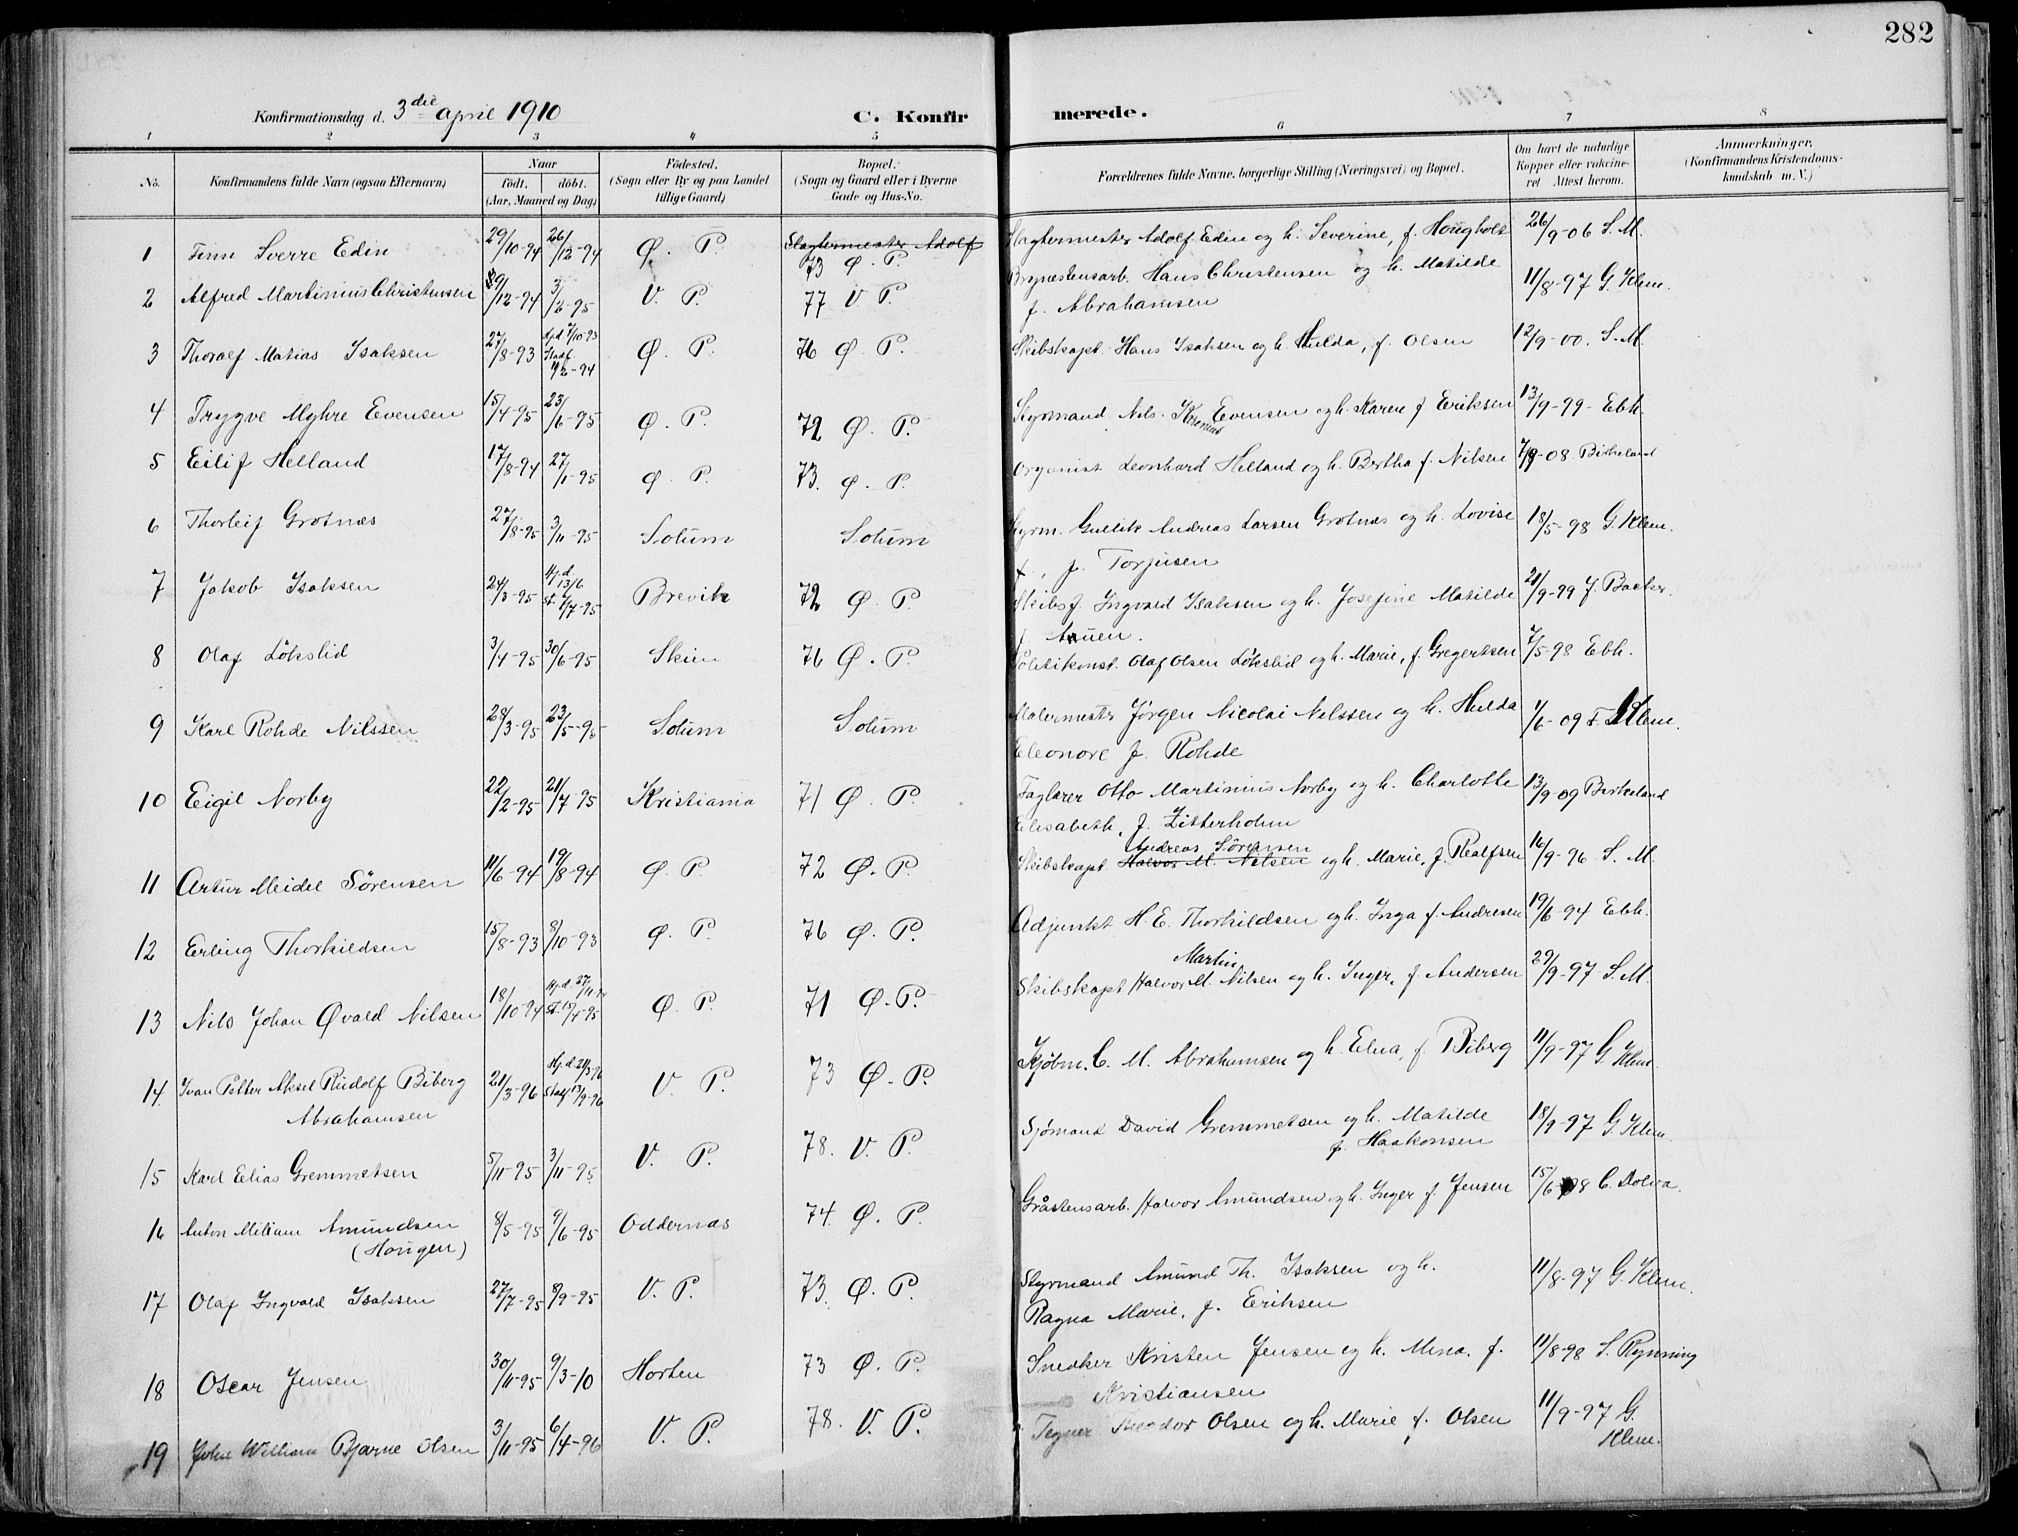 282
Konfirmationsdag d. 3die april 1910 C. Konfirmerede.
1 2 3 4 5 6 7 8
No. Konfirmandens fulde Navn (ogsaa Efternavn) Naar födt. döbt. (Aar, Maaned og Dag) Födested. (Sogn eller By og paa Landet tillige Gaard) Bopæl. (Sogn og Gaard eller i Byerne Gade og Hus-No. Forældrenes fulde Navne, borgerlige Stilling (Næringsvei) og Bopæl. Om havt de naturlige Kopper eller vakcineret Attest herom. Anmærkninger, (Konfirmandens Kristendomskundskab m. V.)
1 Finn Sverre Edin 29/10-94 26/12-94 Ø. P. Slagtermester Adolf 73 Ø. P. Slagtermester Adolf Edin og h. Severine, f. Hougholt 26/9-06 S. M.
2 Alfred Martinius Christensen /12-94 3/2-95 V. P. 77 V P. Hans Christensen og h. Matilde 11/8-97 G. Klem.
f. Abrahamsen
3 Thoralf Matias Isaksen 27/8-93 Hjd 7/10-93 Stadf. -94 Ø. P. 76 Ø. P. Skibskapt. Hans Isaksen og h. Hulda, f. Olsen 12/9-00. S. M
4 Trygve Myhre Evensen 15/4-95 23/6-95 Ø. P. 72 Ø. P. Styrmand Nils Evensen og h. Karen f Eriksen 13/9-99- Ebh.
5 Eilif Helland 17/8-94 27/1-95 Ø P. 73. Ø. P. Organist Leonhard Helland og h. Bertha f. Nilsen 7/9-08. Birkeland
6 Thorleif Grotnæs 27/8-95 3/11-95 Solum Solum Styrm. Gullik Andreas Larsen Grotnæs og h. Lovise 18/5-98 G. Klem.
f. Torjusen
7 Jakob Isaksen 24/3-95 Hj.d. 13/6 st. /7-95 Brevik 72 Ø. P. Skibsf. Ingvald Isaksen og h. Josefine Matilde 21/9-99 J. Backer.
f. Aauen.
8 Olaf Lökslid 3/4-95 30/6-95 Skien 76 Ø. P. Politikonst. Olaf Olsen Lökslid og h. Marie, f. Gregertsen 7/5-98 Ebh.
9 Karl Rohde Nilssen 28/3-95 23/5-95 Solum Solum Malermester Jörgen Nicolai Nilssen og h. Hulda 1/6-09 F. Klem.
Eleonore f. Rohde
10 Eigil Norby 22/2-95 21/7-95 Kristiania 71 Ø. P. Faglærer Otto Martinius Norby og h. Charlotte 13/9-09 Birkeland
Elisabeth, f. Zitterholm
11 Artur Meidel Sörensen 11/6-94 19/8-94 Ø. P. 72 Ø. P. Skibskapt. Halvor M. Nilsen Andreas Sörensen og h. Marie, f. Realfsen 16/9-96 S. M.
12 Erling Thorkildsen 15/8-93 8/10-93 Ø. P. 76 Ø. P. Adjunkt H. E. Thorkildsen og h. Inga f. Andresen 19/6-94 Ebh.
13 Nils Johan Øvald Nilsen 18/10-94 Hj.d. 27/11- St. 15/4-95 Ø. P. 71 Ø. P. Skibskapt Halvor M. Martin Nilsen og h. Inger, f. Andersen 29/9-97 S. M.
14. Ivan Petter Aksel Rudolf Biberg 21/3-96 Hj.d. 24/3-96 Stadf 13/9-96 V. P. 73 Ø. P. Kjøbm. C. M. Abrahamsen og h. Elna, f. Biberg 11/9-97 G. Klem.
Abrahamsen
15 Karl Elias Gremmetsen 5/11-95 3/11-95 V. P. 78. V. P. Sjömand David Gremmetsen og h. Matilde 18/9-97 G. Klem.
f. Haakonsen
16 Anton Miliam Amundsen 8/5-95 9/6-95 Oddernæs 74. Ø. P. Gråstensarb. Halvor Amundsen og h. Inger f. Jensen 15/6-98 C. Dolva.
(Hougen)
17 Olaf Ingvald Isaksen 27/7-95 8/9-95 V. P. 73. Ø. P. Styrmand Amund Th. Isaksen og h. 11/8-97 G. Klem.
Ragna Marie, f. Eriksen
18 Oscar Jensen 30/11-95 9/3-10 Horten 73 Ø. P. Snedker Kristen Jensen og h. Mina, f. 11/8-98 S. Rynning
Kristiansen
19 John William Bjarne Olsen 3/11-95 6/4-96 V. P. 78. V. P. Tegner Teodor Olsen og h. Marie f. Olsen 11/9-97 G.
Klem.